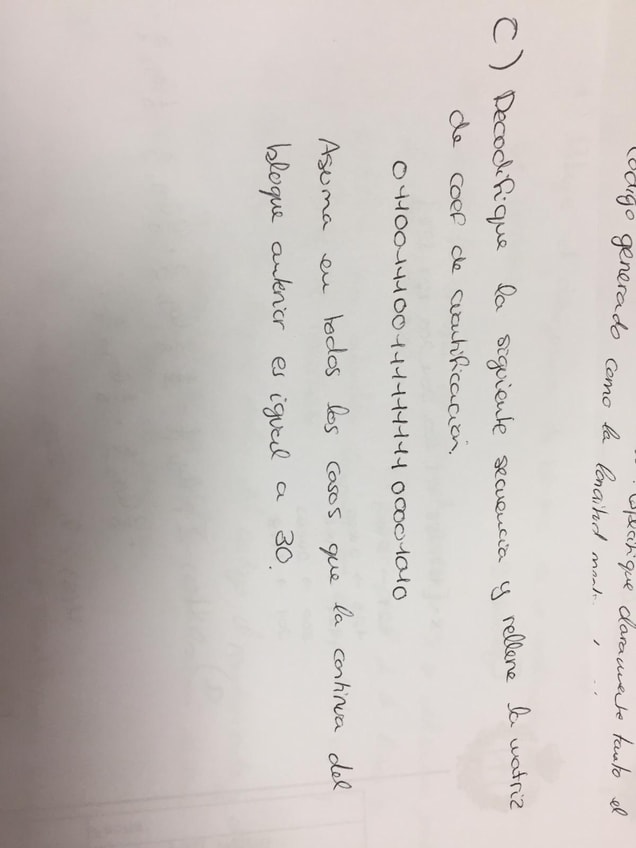 especifique claramente tanto el
Código generado como la longitud
C) Decodifique la siguiente secuencia y rellene la matriz
de coef de cuantificación.
Asuma en todos los casos que la continua del
bloque anterior es igual a 30.